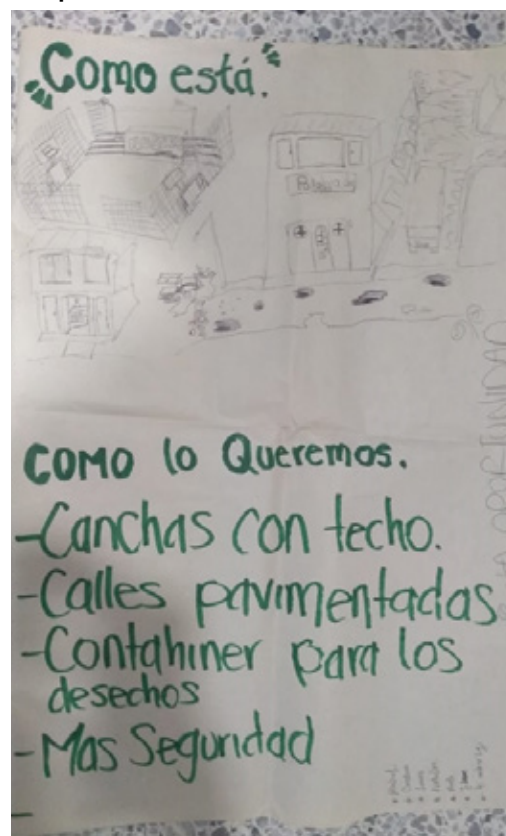 "Como está."
COMO lo Queremos.
-Canchas con techo.
-Calles pavimentadas
-Contahiner para los
desechos
-Mas Seguridad
-
OPORTUNIDAD